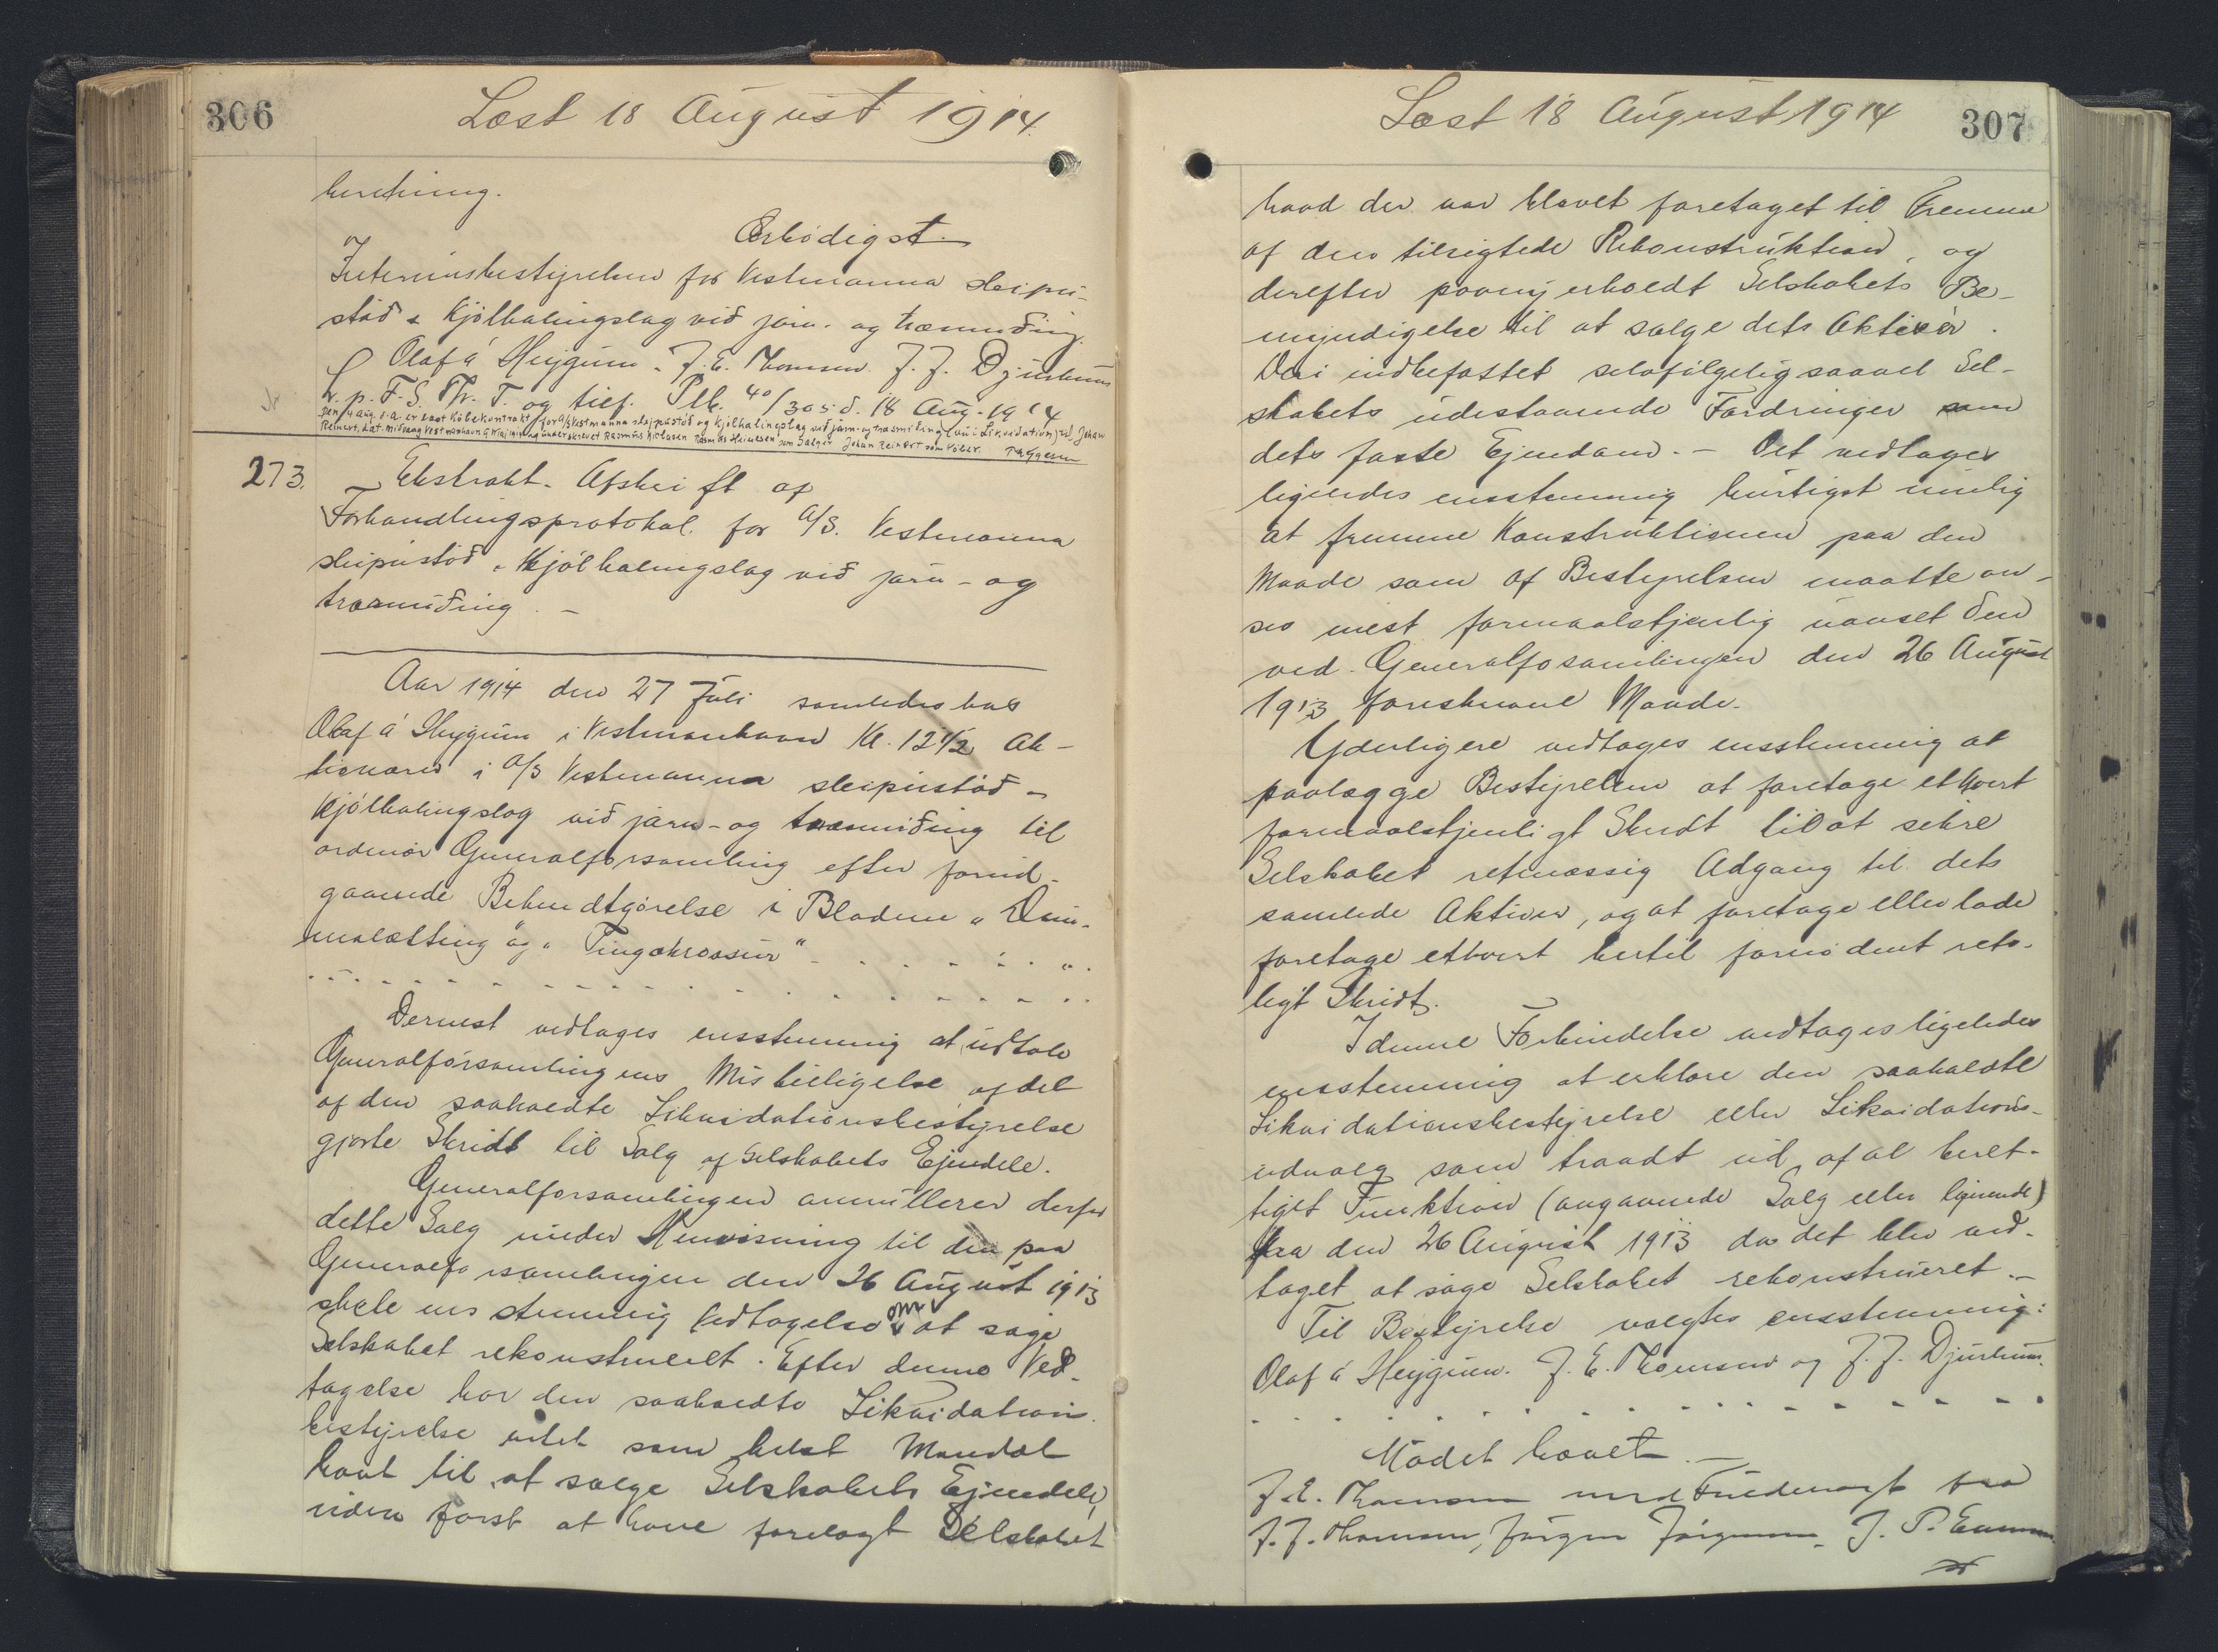 306
Læst 18 August 1914.
beretning.
Ærbödigst.
Interimsbestyrelsen for Vestmanna skipu-
stöð & Kjölhalingslag við járn- og træsmiðing.
Olaf á Heygum. J. E. Thomsen. J. J. Djurhuus
L. p. F. S. Th. T. og tilf. Plb. 40/305 d. 18 Aug. 1914
den 4 Aug. s.a. er læst Köbekontrakt for A/S Vestmanna skipustöð og kjölhalingslag við járn- og træsmiðing (nu i Likvidation) til Johan
Reinert, dat. underskrevet Rasmus Niclasen Rasmus Heinesen som Sælger Johan Reinert som Köber.
273.
Ekstrakt-Afskrift af
Forhandlingsprotokol for A/S. Vestmanna
skipustöð & Kjölhalingslag við járn- og
træsmiðing. —
Aar 1914 den 27 Juli samledes hos
Olaf á Heygum i Vestmanhavn Kl. 12 1/2 Ak-
tionærer i A/S Vestmanna skipustöð -
Kjölhalingslag við járn- og træsmiðing til
ordinær Generalforsamling efter forud-
gaaende Bekendtgörelse i Bladene "Dim-
malætting" og "Tingakrossur" - . . . . . . .
. . . . . . . . . . . . . . . .
Dernæst vedtages enstemmig at udtale
Generalforsamlingens Misbilligelse af det
af den saakaldte Likvidationsbestyrelse
gjorte Skridt til Salg af Selskabets Ejendele.
Generalforsamlingen annullerer derfor
dette Salg under Henvisning til den paa
Generalforsamlingen den 26 August 1913
skete enstemmig Vedtagelse om at söge
Selskabet rekonstrueret. Efter denne Ved-
tagelse har den saakaldte Likvidations-
bestyrelse intet som helst Mandat
havt til at sælge Selskabets Ejendele,
uden först at have forelagt Selskabet
Læst 18 August 1914
307
hvad der var blevet foretaget til Fremme
af den tilsigtede Rekonstruktion, og
derefter paany erholdt Selskabets Be-
myndigelse til at sælge dets Aktiver.
Deri indbefattet selvfölgelig saavel Sel-
skabets udestaaende Fordringer som
dets faste Ejendom. — Det vedtages
ligeledes enstemmig hurtigst mulig
at fremme Konstruktionen paa den
Maade som af Bestyrelsen maatte an-
ses mest formaalstjenlig uanset den
ved Generalfosamlingen den 26 August
1913 foreskrevne Maade.
Yderligere vedtages enstemmig at
paalægge Bestyrelsen at foretage ethvert
formaalstjenligt Skridt til at sikre
Selskabet retmæssig Adgang til dets
samlede Aktiver, og at foretage eller lade
foretage ethvert hertil fornödent rets-
ligt Skridt.
I denne Forbindelse vedtages ligeledes
enstemmig at erklære den saakaldte
Likvidationsbestyrelse eller Likvidations-
udvalg som traadt ud af al beret-
tiget Funktion (angaaende Salg eller lignende)
fra den 26 August 1913 da det blev ved-
taget at söge Selskabet rekonstrueret. —
Til Bestyrelse valgtes enstemmig:
Olaf á Heygum. J. E. Thomsen og J. J. Djurhuus.
. . . . . . . . . . . . . . .
Mödet hævet. —
J. E. Thomsen med Fuldmagt fra
J. J. Thomsen, Jörgen Jörgensen, J. P.